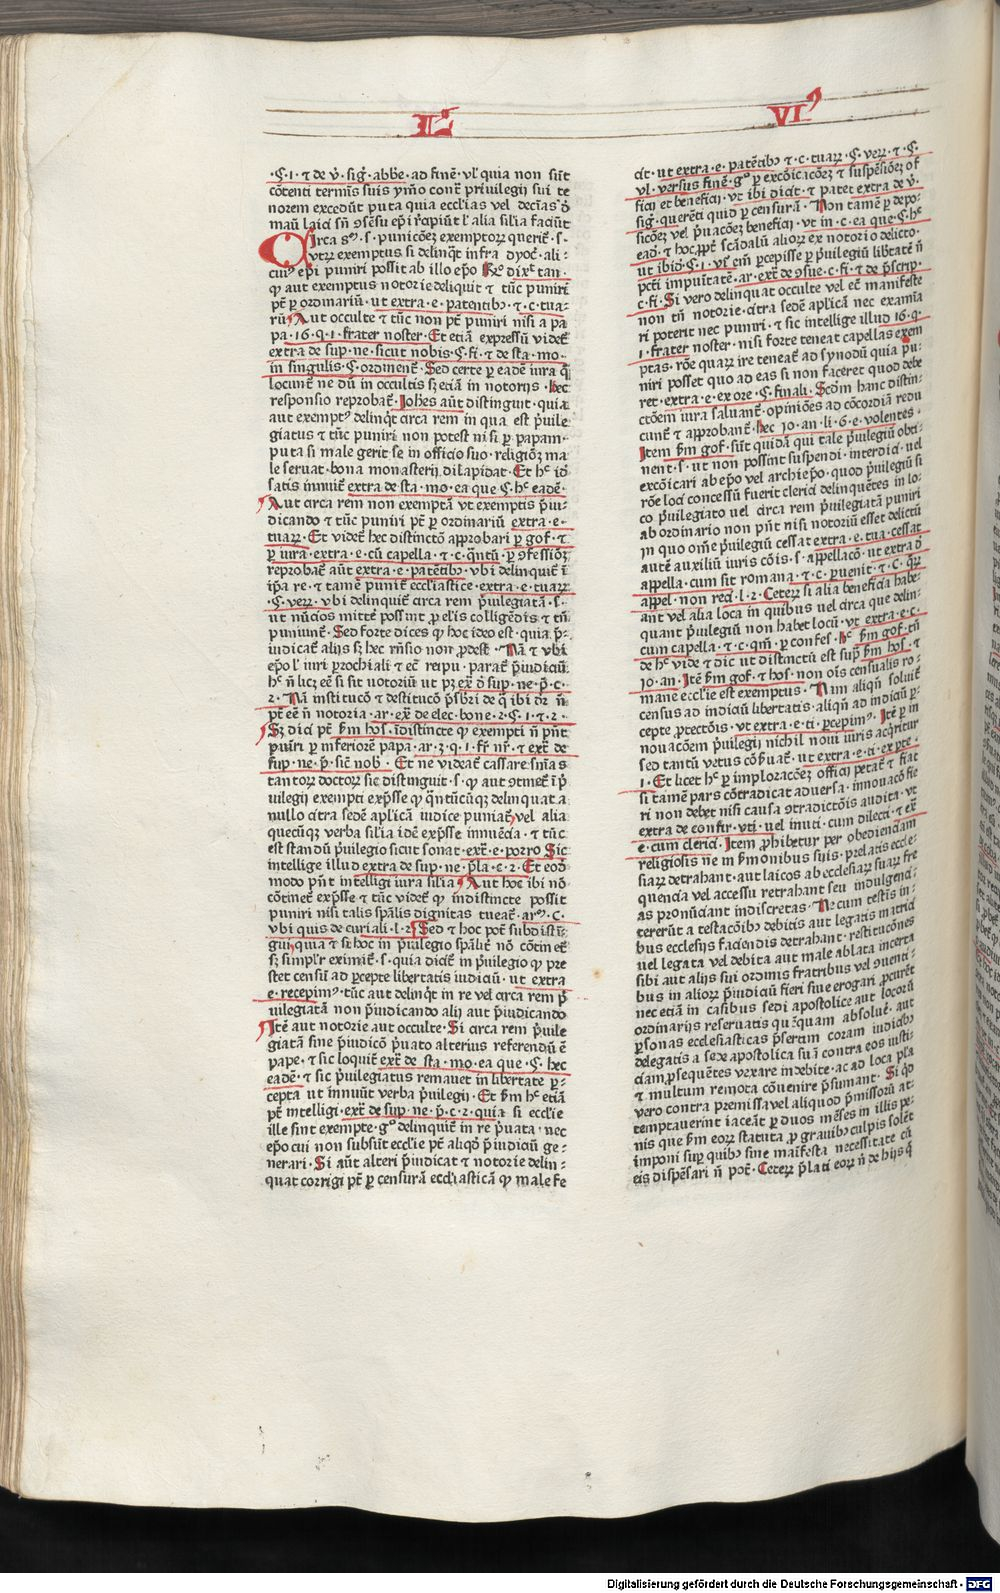 L VI⁹
·Ç·1·⁊ de v̄·sig̃·abbē·ad finē·vl̕ quia non sūt
cōtenti termīs suis ymo contͣ priuilegij sui te
norem excedūt puta quia ecclīas vel decīas ð
Circa sᵐ·s·punicōez exemptorꝝ querit̃·s·
vtrꝝ exemptus si delinq̄t infra dyoc̄·ali-
cuiꝰ epī puniri possit ab illo epō dixͭ tan·
ꝙ aut exemptus notorie deliquit ⁊ tūc puniri
pt̄ ꝑ ordinariū·ut extra·e·patentibꝫ·⁊·c·tua-
rū Aut occulte ⁊ tūc non pt̄ puniri nisi a pa
pa·16·q·1·frater noster·Et etiā expressū videt̃
extra de sup·ne·sicut nobis·Ç·fi·⁊ de sta·mo·
in singulis·Ç·ordinent̃·Sed certe ꝑ eadē iura q̄
locunt̃ ne dū in occultis sꝫ etiā in notorijs·hec
responsio reprobat̃·Johēs aūt distinguit·quia
aut exemptꝰ delinq̄t circa rem in qua est p̄uile
giatus ⁊ tūc puniri non potest nisi ꝑ papam·
puta si male gerit se in officio suo·religiōꝫ ma
le seruat·bona monasterij dilapidat·Et hͨ idꝫ
satis innuit̃ extra de sta·mo·ea que Ç·hͨ eadē·
Aut circa rem non exemptā vt exemptis p̄iu-
dicando ⁊ tūc puniri pt̄ ꝑ ordinariū extra·e·
tuarꝝ·Et videt̃ hec distinctō approbari ꝑ gof·⁊
ꝑ iura·extra·e·cū capella·⁊·c·q̄ntū·ꝑ ꝯfessiōꝫ
reprobat̃ aūt extra·e·patētibꝫ·vbi delinquit̃ ī
ip̄a re·⁊ tamē punit̃ ecclīastice·extra·e·tuarꝝ
·Ç·verꝝ·vbi delinquit̃ circa rem p̄uilegiatā·s·
ut nūcios mittēt possint ꝓ elīs colligēdis ⁊ tn̄
puniunt̃·Sed forte dices ꝙ hoc ideo est·quia p̄-
iudicat̃ alijs sꝫ hec rn̄sio non ꝓdest·Nā ⁊ vbi
ep̄o l̕ iuri ꝑrochiali ⁊ ec̄ reipu·parat̃ p̄iudiciū
hͨ n̄ licꝫ eē si sit notoriū ut pꝫ exͣ ð sup·ne·p̄·c·
2·Nā institucō ⁊ destitucō p̄sbr̄i de q̄ ibi dr̄ n̄
pt̄ eē n̄ notoria·ar·exͣ de elec·bone·2·Ç·1·⁊·2·
Sꝫ dici pt̄ ẜm hoſ·īdistincte ꝙ exempti n̄ pn̄t
puniri ꝑ inferiorē papa·ar·3·q·1·fr̄ nr̄·⁊ exͣ de
sup·ne·p̄·sic̄ nob̄·Et ne videat̃ cassare sn̄ias
tantorꝝ doctorꝝ sic distinguit·s·ꝙ aut ꝯtinet̃ ī p̄
uilegij exempti exp̄sse ꝙ q̄ntūcūqꝫ delinquat·a
nullo citra sedē aplicā iudice puniat̃ vel alia
quecūqꝫ verba silīa idē exp̄sse innuēcia·⁊ tūc
est standū p̄uilegio sicut sonat·exͣ·e·porro Sic
intellige illud extra de sup·ne·p̄la·c·2·Et eodē
modo pn̄t intelligi iura silīa Aut hoc ibi nō
cōtinet̃ exp̄sse ⁊ tūc videt̃ ꝙ indistincte possit
puniri nisi talis sp̄alis dignitas tueat̃·arᵐ·c·
vbi quis de curiali·l·2·Sed ⁊ hoc pot̄ subdistī-
gui quia ⁊ si hoc in p̄uilegio sp̄alit̃ nō cōtinet̃
sꝫ simplr̄ eximat̃·s·quia dicit̃ in p̄uilegio ꝙ pre
stet censū ad ꝑcepte libertatis iudiciū·ut extra
e·recepimꝰ·tūc aut delinq̄t in re vel circa rem p̄
uilegiatā non p̄iudicando alij aut p̄iudicando
Itē aut notorie aut occulte·Si circa rem p̄uile
giatā sine p̄iudicō p̄uato alterius referendū ē
pape·⁊ sic loquit̃ exͣ de sta·mo·ea que·Ç·hec
eadē·⁊ sic p̄uilegiatus remanet in libertate ꝑ-
cepta ut innuūt verba p̄uilegij·Et ẜm hͨ etiā
pt̄ intelligi·exͣ de sup·ne·p̄·c·2·quia si ecclīe
ille sint exempte·gͦ delinquit̃ in re p̄uata·nec
ep̄o cui non subsūt ecclīe pt̄ aliqd̄ p̄iudiciū ge-
nerari·Si aūt alteri p̄iudicat ⁊ notorie delin-
quat corrigi pt̄ ꝑ censurā ecclīasticā ꝙ male fe
cit·ut extra·e·patētibꝫ ⁊·c·tuarꝝ·Ç·verꝝ·⁊·Ç·
vl·versus finē·gͦ ꝑ excōicacōeꝫ ⁊ suspēsiōeꝫ of
ficij et beneficij·vt ibi dicit̃·⁊ patet extra de v̄·
sig·querēti quid ꝑ censurā·Non tamē ꝑ depo-
sicōeꝫ vel p̄uacōeꝫ beneficij·vt in·c·ea que·Ç·hͨ
ead·⁊ hoc ꝓpt̃ scādalū aliorꝝ ex notorio delicto·
c·fi·Si vero delinquat occulte vel ec̄ manifeste
non tn̄ notorie·citra sedē aplicā nec examia
ri poterit nec punri·⁊ sic intellige illud 16·q·
1·frater noster·nisi forte teneat capellas exem
ptas·rōe quarꝝ ire teneat̃ ad synodū quia pu-
niri posset quo ad eas si non faceret quod debe
ret·extra·e·ex ore·Ç·finali·Scd̄m hanc distin-
ctōem iura saluant̃·opiniōes ad cōcordiā redu
cunt̃ ⁊ approbant̃·hec jo·an·li·6·e·volentes·
Item ẜm gof·sūt quidā qui tale p̄uilegiū obti-
nent·s·ut non possint suspendi·interdici·uel
excōicari ab ep̄o vel archiep̄o·quod p̄uilegiū si
rōe loci concessū fuerit clerici delinquētes in lo-
co p̄uilegiato vel circa rem p̄uilegiatā puniri
ab ordinario non pn̄t nisi notoriū esset delictū
in quo om̄e p̄uilegiū cessat extra·e·tua·cessat
autē auxiliū iuris cōis·s·appellacō·ut extra ð
appella·cum sit romana·⁊·c·ꝑuenit·⁊·c·q̄rꝝ
appel·non reci·l·2·Ceterꝝ si alia beneficia habe-
ant vel alia loca in quibus uel circa que delin-
quant p̄uilegiū non habet locū·vt extra·e·c·
cum capella·⁊·c·qm̄·ꝑ confes·hͨ ẜm gof·tn̄
de hͨ vide ⁊ dic ut distinctū est sup̄ ẜm hoſ·⁊
jo·an·Itē ẜm gof·⁊ hoſ·non oīs censualis ro-
mane ecclīe est exemptus·Nam aliqn̄ soluit̃
census ad indiciū libertatis·aliqn̄ ad indiciū ꝑ-
cepte ꝓtectōis·vt extra·e·ti·ꝑcepimꝰ·Itē ꝑ in
nouacōem p̄uilegij nichil noui iuris acq̄ritur
sed tantū vetus cōẜuat̃·ut extra·e·ti·ex pte·
1·Et licet hͨ ꝑ imploracōeꝫ officij petat̃ ⁊ fiat
si tamē pars cōtradicat aduersa·innouacō fie
ri non debet nisi causa ꝯtradictōis audita·vt
extra de confir·vti·uel inuti·cum dilecti·⁊ exͣ
e·cum clerici·Item ꝓhibetur per obedienciam
religiosis ne in ẜmonibus suis·prelatis eccle-
siarꝝ detrahant·aut laicos ab ecclesiarꝝ suarꝝ fre
quencia vel accessu retrahant seu indulgenci-
as pronūciant indiscretas·Nec cum testīs in-
tererūt a testacōibꝫ debitis aut legatis matrici
bus ecclesijs faciendis detrahant·restitucōnes
uel legata vel debita aut male ablata incerta
sibi aut alijs sui ordinis fratribus vel ꝯuenti-
bus in aliorꝝ p̄iudiciū fieri siue erogari ꝓcurēt
nec etiā in casibus sedi apostolice aut locorū
ordinarijs reseruatis quēquam absoluēt·aut
ꝑsonas ecclesiasticas p̄sertim coram iudicibꝫ
delegatis a sede apostolica suā contra eos iusti-
ciam ꝓsequētes vexare indebite·ac ad loca pl̄a
⁊ multum remota cōuenire p̄sumant·Si qd̄
vero contra premissa vel aliquod p̄missorū at-
temptauerint iaceāt ꝑ duos mēses in illis pe-
nis que ẜm eorꝝ statuta ꝓ grauibꝫ culpis solēt
imponi suꝑ quibꝫ sine maīfesta necessitate cū
eis dispēsari n̄ pot̄·Ceterꝝ p̄lati eorꝝ n̄ de hijs q̄
Digitalisierung gefördert durch die Deutsche Forschungsgemeinschaft - DFG